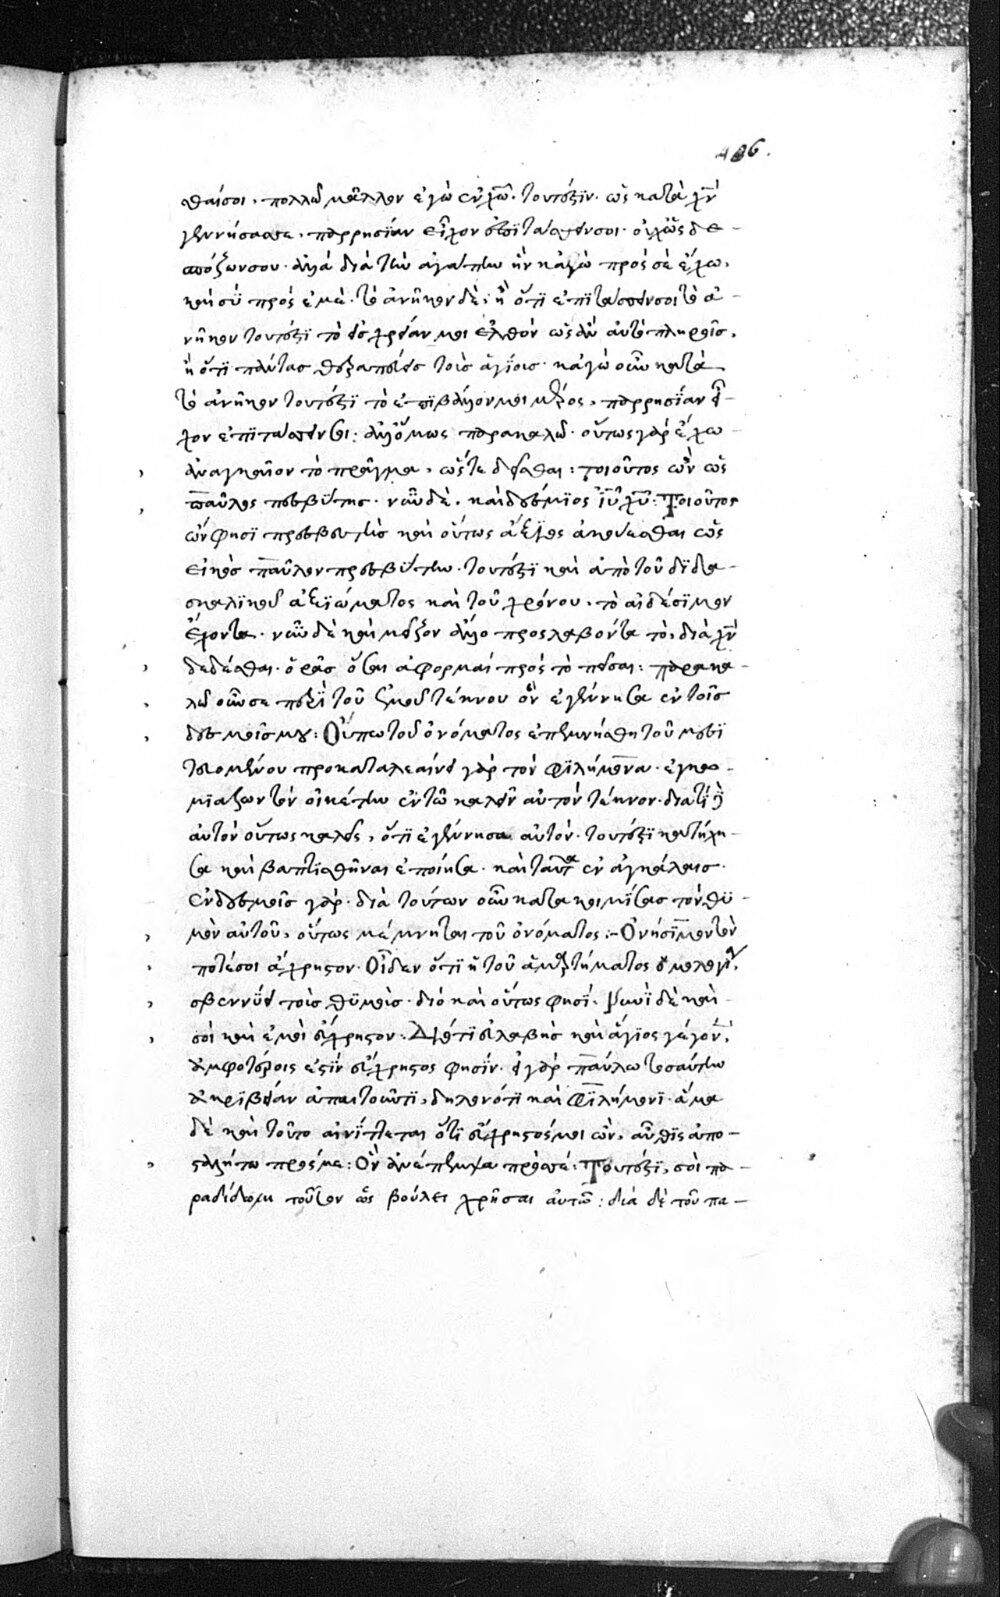 486.
θαί σοι. πολλῶ μᾶλλον ἐγὼ ἐν χῶ. τουτέστιν. ὡς κατὰ χν
γεννήσας σε. παρρησίαν εἶχον ἐπιτάττειν σοι. οὐχ ὡς δε-
σπόζων σου. ἀλλὰ διὰ τὴν ἀγάπην ἣν κἀγὼ πρὸς σὲ ἔχω.
καὶ σὺ πρὸς ἐμέ. τὸ ἀνῆκον δὲ. ἢ ὅτι ἐπιτάττειν σοι τὸ ἀ-
νῆκον τουτέστι τὸ εἰς χρείαν μοι ἐλθὸν ὡς ἂν αὐτὸ πληροῖς.
ἢ ὅτι πάντας θεραπεύεις τοὺς ἁγίους. κἀγὼ οὖν κατὰ
τὸ ἀνῆκον τουτέστι τὸ ἐπιβάλλον μοι μέρος, παρρησίαν εἶ-
χον ἐπιτάττειν σοι: ἀλλ' ὅμως παρακαλῶ. οὕτως γὰρ ἔχω
ἀναγκαῖον τὸ πρᾶγμα, ὥστε δεῖσθαι: τοιοῦτος ὢν ὡς
παῦλος πρεσβύτης. νῦν δὲ. καὶ δέσμιος ιυ χυ: Τοιοῦτος
ὢν φησὶ πρεσβευτὴς καὶ οὕτως ἄξιος ἀκούεσθαι ὡς
εἰκὸς παῦλον πρεσβύτην. τουτέστι καὶ ἀπὸ τοῦ διδα-
σκαλικοῦ ἀξιώματος καὶ τοῦ χρόνου. τὸ αἰδέσιμον
ἔχοντα. νῦν δὲ καὶ μεῖζον ἄλλο προσλαβόντα τὸ, διὰ χν
δεδέσθαι. ὁρᾶς ὅσαι ἀφορμαὶ πρὸς τὸ πεῖσαι: παρακα-
λῶ οὖν σε περὶ τοῦ ἐμοῦ τέκνου ὃν ἐγέννησα ἐν τοῖς
δεσμοῖς μου: Οὔπω τοῦ ὀνόματος ἐπεμνήσθη τοῦ
προκαταλεαίνει γὰρ τὸν φιλήμονα.
τὸν οἰκέτην ἐν τῶ καλεῖν αὐτὸν τέκνον. διατί
αὐτὸν οὕτως καλεῖς, ὅτι ἐγέννησα αὐτόν. τουτέστι κατήχη-
σα καὶ βαπτισθῆναι ἐποίησα. καὶ ταῦτα ἐν ἀνάγκαις.
ἐν δεσμοῖς γάρ. διὰ τούτων οὖν κατακοιμίσας τὸν θυ-
μὸν αὐτοῦ, οὕτως μέμνηται τοῦ ὀνόματος:- Ὀνήσιμον τόν
ποτέ σοι ἄχρηστον. Οἶδεν ὅτι ἡ τοῦ ἁμαρτήματος ὁμολογία
σβεννύει τοὺς θυμούς. διὸ καὶ οὕτως φησί. Νυνὶ δὲ καὶ
σοὶ καὶ ἐμοὶ εὔχρηστον. Διότι εὐλαβὴς καὶ ἅγιος γέγονεν,
ἀμφοτέροις ἐστὶν εὔχρηστος φησίν. εἰ γὰρ παύλω τοσαύτην
ἀκρίβειαν ἀπαιτοῦντι, δηλονότι καὶ φιλήμονι. ἅμα
δὲ καὶ τοῦτο αἰνίττεται ὅτι εὔχρηστός μοι ὢν, αὖθις ἀπο-
σταλήτω πρός με: Ὃν ἀνέπεμψα πρὸς σέ: Τουτέστι, σοὶ πα-
ραδίδωμι τοῦτον ὡς βούλει χρῆσαι αὐτῶ: διὰ δὲ τοῦ πα-